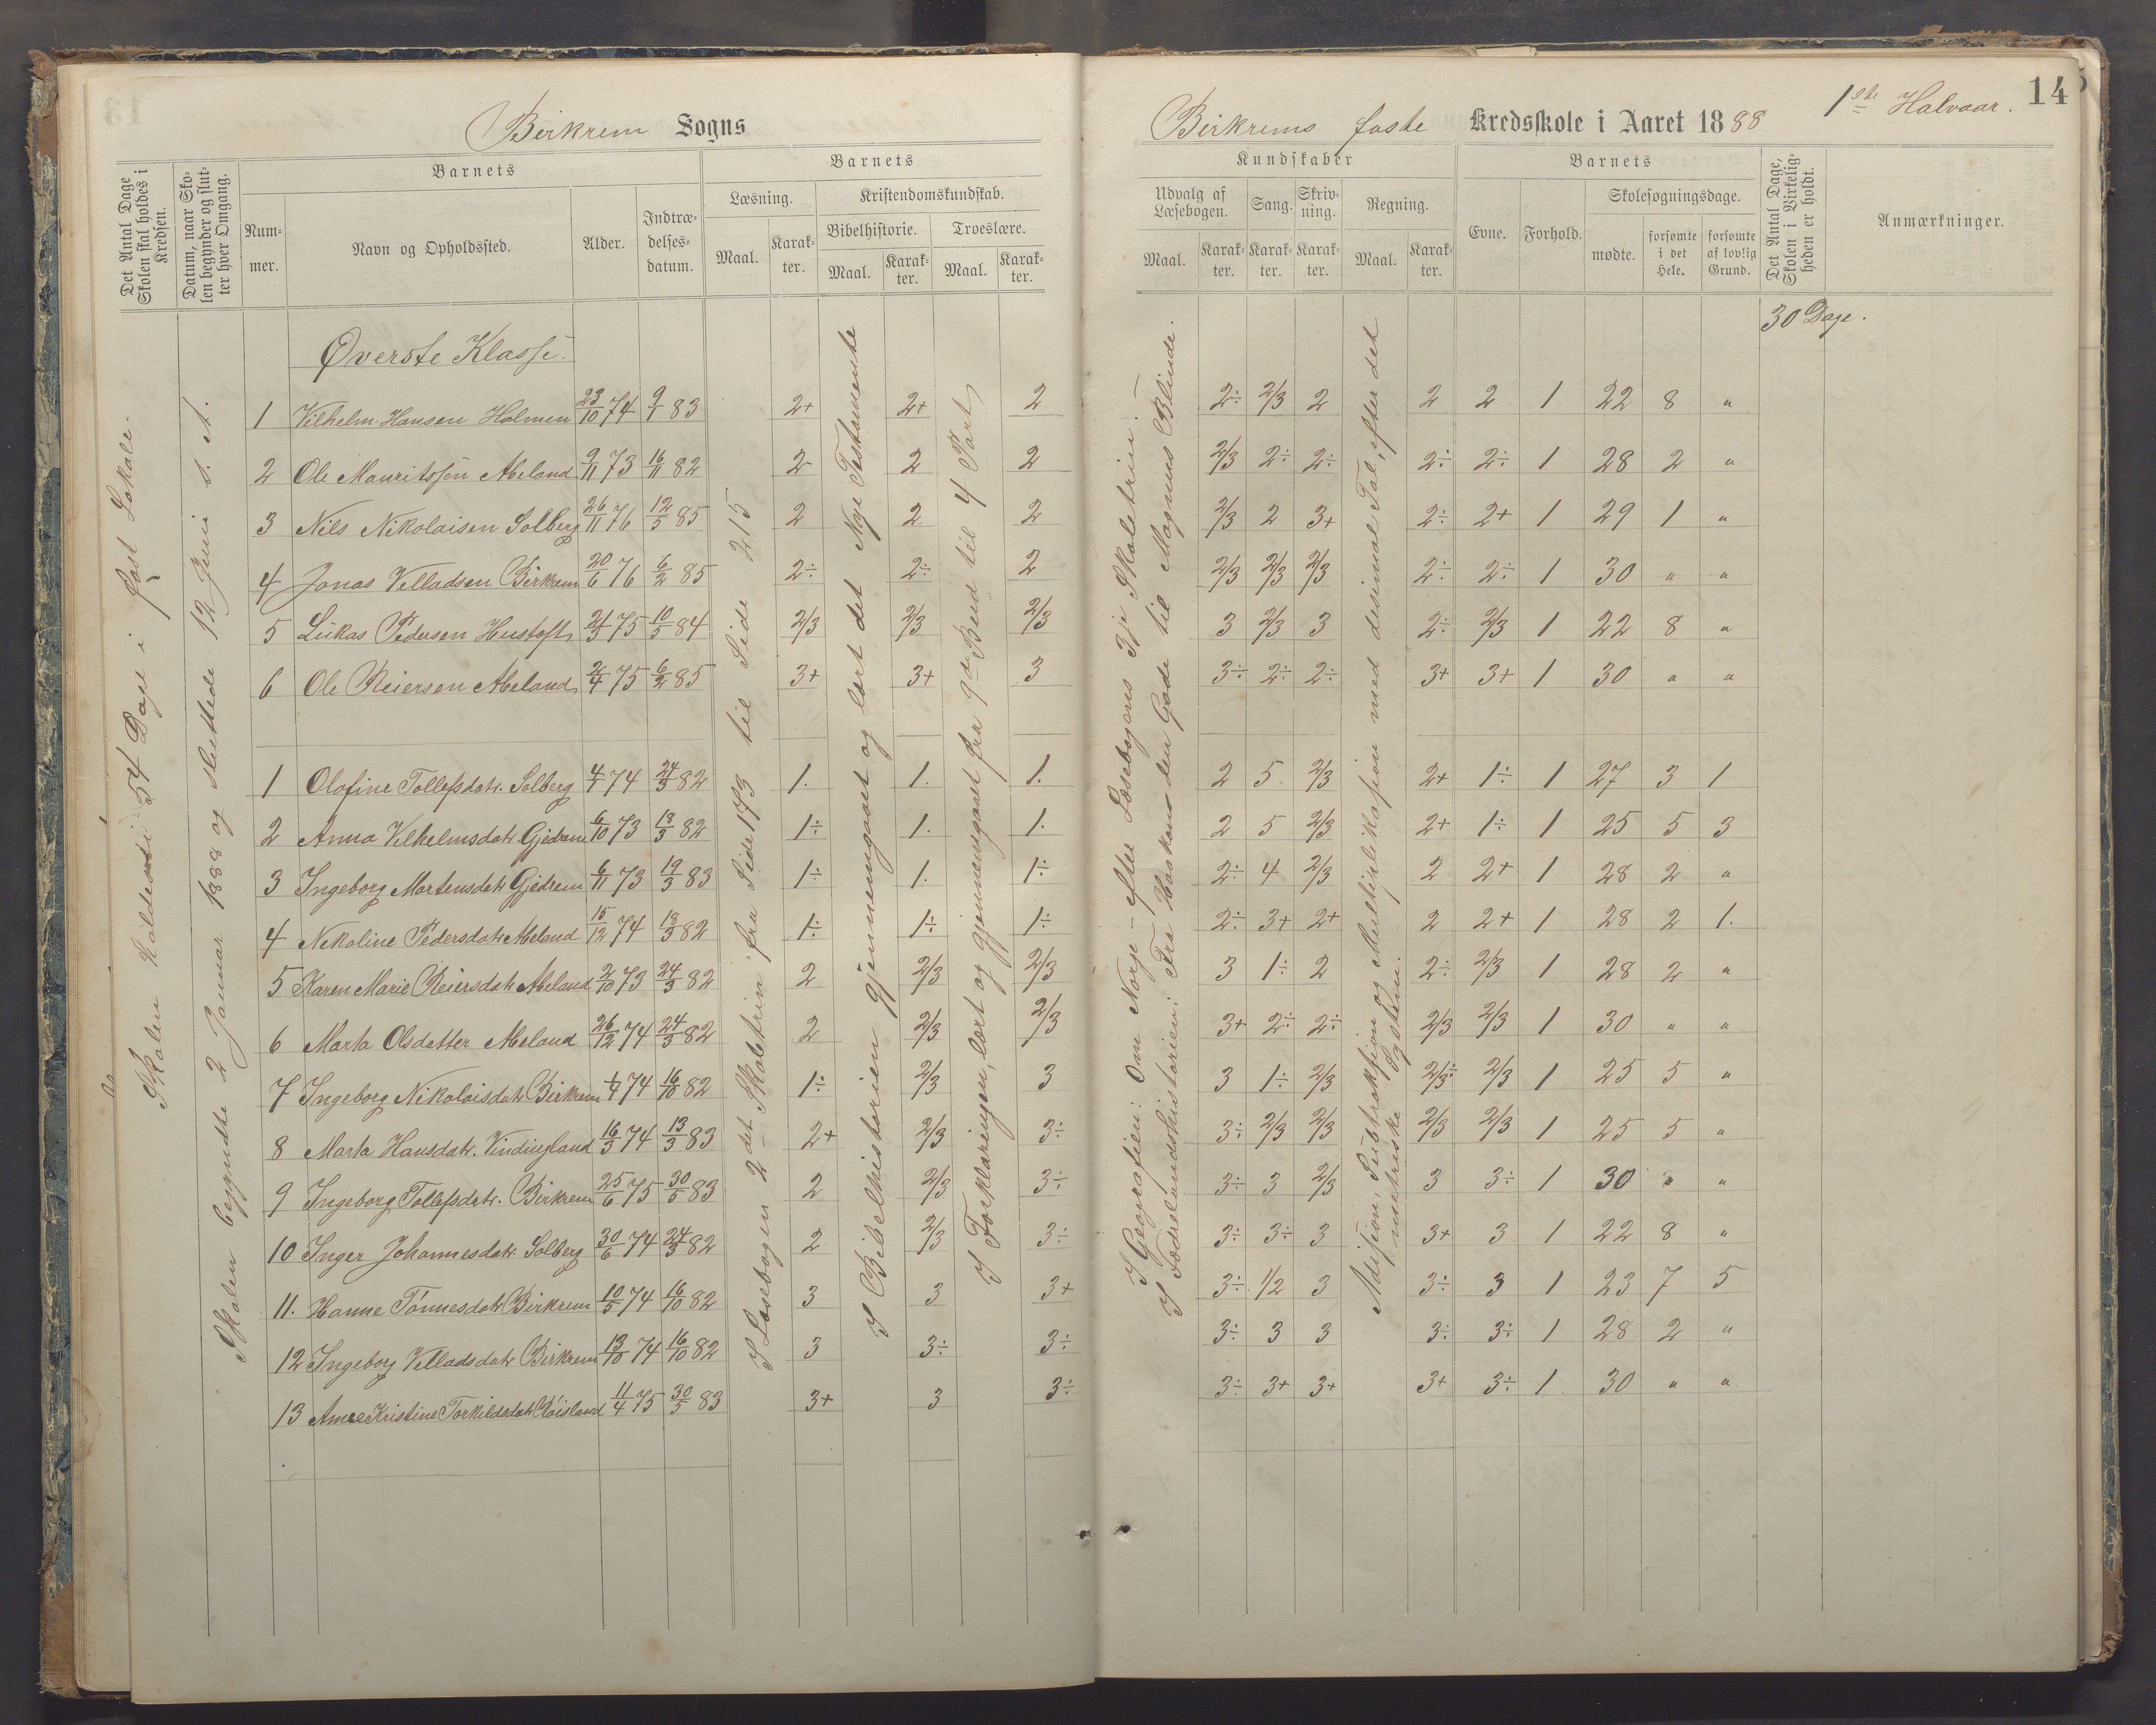 Birkrem Sogns
Birkrems faste Kredsskole i Aaret 1888
1ste Halvaar.
14
Det Antal Dage Skolen skal holdes i Kredsen.
Datum, naar Skolen begynder og slutter hver Omgang.
Barnets
Nummer.
Navn og Opholdssted.
Alder.
Indtrædelsesdatum.
Barnets
Læsning.
Maal.
Karakter.
Kristendomskundskab.
Bibelhistorie.
Maal.
Karakter.
Troeslære.
Maal.
Karakter.
Kundskaber
Udvalg af Læsebogen.
Maal.
Karakter.
Sang.
Karakter.
Skrivning.
Karakter.
Regning.
Maal.
Karakter.
Barnets
Evne.
Forhold.
Skolesøgningsdage.
mødte.
forsømte i det Hele.
forsømte af lovlig Grund.
Det Antal Dage, Skolen i Virkeligheden er holdt.
Anmærkninger.
30 Dage.
Skolen holdes i 54 Dage i fast Lokale.
Skolen begyndte 2 Januar 1888 og sluttede 12 Juni s. A.
I Læsebogen 2det Skoletrin fra Side 173 til Side 215
I Bibelhistorien gjennemgaaet og lært det Nye Testamente
I Forklaringen, lært og gjennemgaaet fra 9de Bud til 4 Part
I Geografien: Om Norge - efter Læsebogens 3je Skoletrin.
I Fædrelandshistorien: Fra Haakon den Gode til Magnus Blinde.
Adisjon, Subtraksjon og Multiplikasjon med desimal Tal, efter det
metriske System.
Øverste Klasse.
1 Vilhelm Hansen Holmen 23/10 74 9/1 83 2+ 2+ 2 2÷ 2/3 2 2 2 1 22 8 "
2 Ole Mauritssen Abeland 9/11 73 16/11 82 2 2 2 2/3 2÷ 2÷ 2÷ 2÷ 1 28 2 "
3 Nils Nikolaisen Solberg 26/11 76 12/5 85 2 2 2 2/3 2 3+ 2÷ 2+ 1 29 1 "
4 Jonas Velladsen Birkrem 20/6 76 6/2 85 2÷ 2÷ 2 2/3 2/3 2/3 2÷ 2÷ 1 30 " "
5 Lukas Pedersen Hustoft 21/3 75 10/5 84 2/3 2/3 2/3 3 2/3 3 2÷ 2/3 1 22 8 "
6 Ole Reiersen Abeland 2/4 75 6/2 85 3+ 3+ 3 3÷ 2÷ 2÷ 3+ 3+ 1 30 " "
1 Olofine Tollefsdatr. Solberg 4/1 74 24/3 82 1. 1. 1. 2 5 2/3 2+ 1÷ 1 27 3 1
2 Anna Vilhelmsdatr Gjedrem 6/10 73 13/3 82 1÷ 1. 1. 2 5 2/3 2+ 1÷ 1 25 5 3
3 Ingeborg Martensdatr Gjedrem 6/11 73 19/3 83 1÷ 1. 1÷ 2÷ 4 2/3 2 2+ 1 28 2 "
4 Nikoline Pedersdatr Abeland 15/12 74 13/3 82 1÷ 1÷ 1÷ 2÷ 3+ 2+ 2 2+ 1 28 2 1.
5 Karen Marie Reiersdatr Abeland 2/10 73 24/3 82 2 2/3 2/3 3 1÷ 2 2÷ 2/3 1 28 2 "
6 Marta Olsdatter Abeland 26/12 74 24/3 82 2 2/3 2/3 3+ 2÷ 2÷ 2/3 2/3 1 30 " "
7 Ingeborg Nikolaisdatr Birkrem 1/7 74 16/10 82 1÷ 2/3 3 3 1÷ 2/3 2/3÷ 2/3 1 25 5 "
8 Marta Hansdatr. Vindingland 16/3 74 13/3 83 2+ 2/3 3÷ 3÷ 2/3 2/3 2/3 2/3 1 25 5 "
9 Ingeborg Tollefsdatr. Birkrem 25/6 75 30/5 83 2 2/3 3÷ 3÷ 3 2/3 3 3÷ 1 30 " "
10 Inger Johannesdatr Solberg 30/6 74 24/3 82 2 2/3 3÷ 3÷ 3÷ 3 3+ 3 1 22 8 "
11. Hanne Tønnesdatr Birkrem 10/5 74 16/10 82 3 3 3+ 3÷ 1/2 3 3÷ 3 1 23 7 5
12 Ingeborg Velladsdatr Birkrem 13/10 74 16/10 82 3 3÷ 3÷ 3÷ 3 3 3÷ 3÷ 1 28 2 "
13 Anne Kristine Torkildsdatr Røisland 11/4 75 30/5 83 3+ 3 3÷ 3÷ 3+ 3+ 3+ 3÷ 1 30 " "